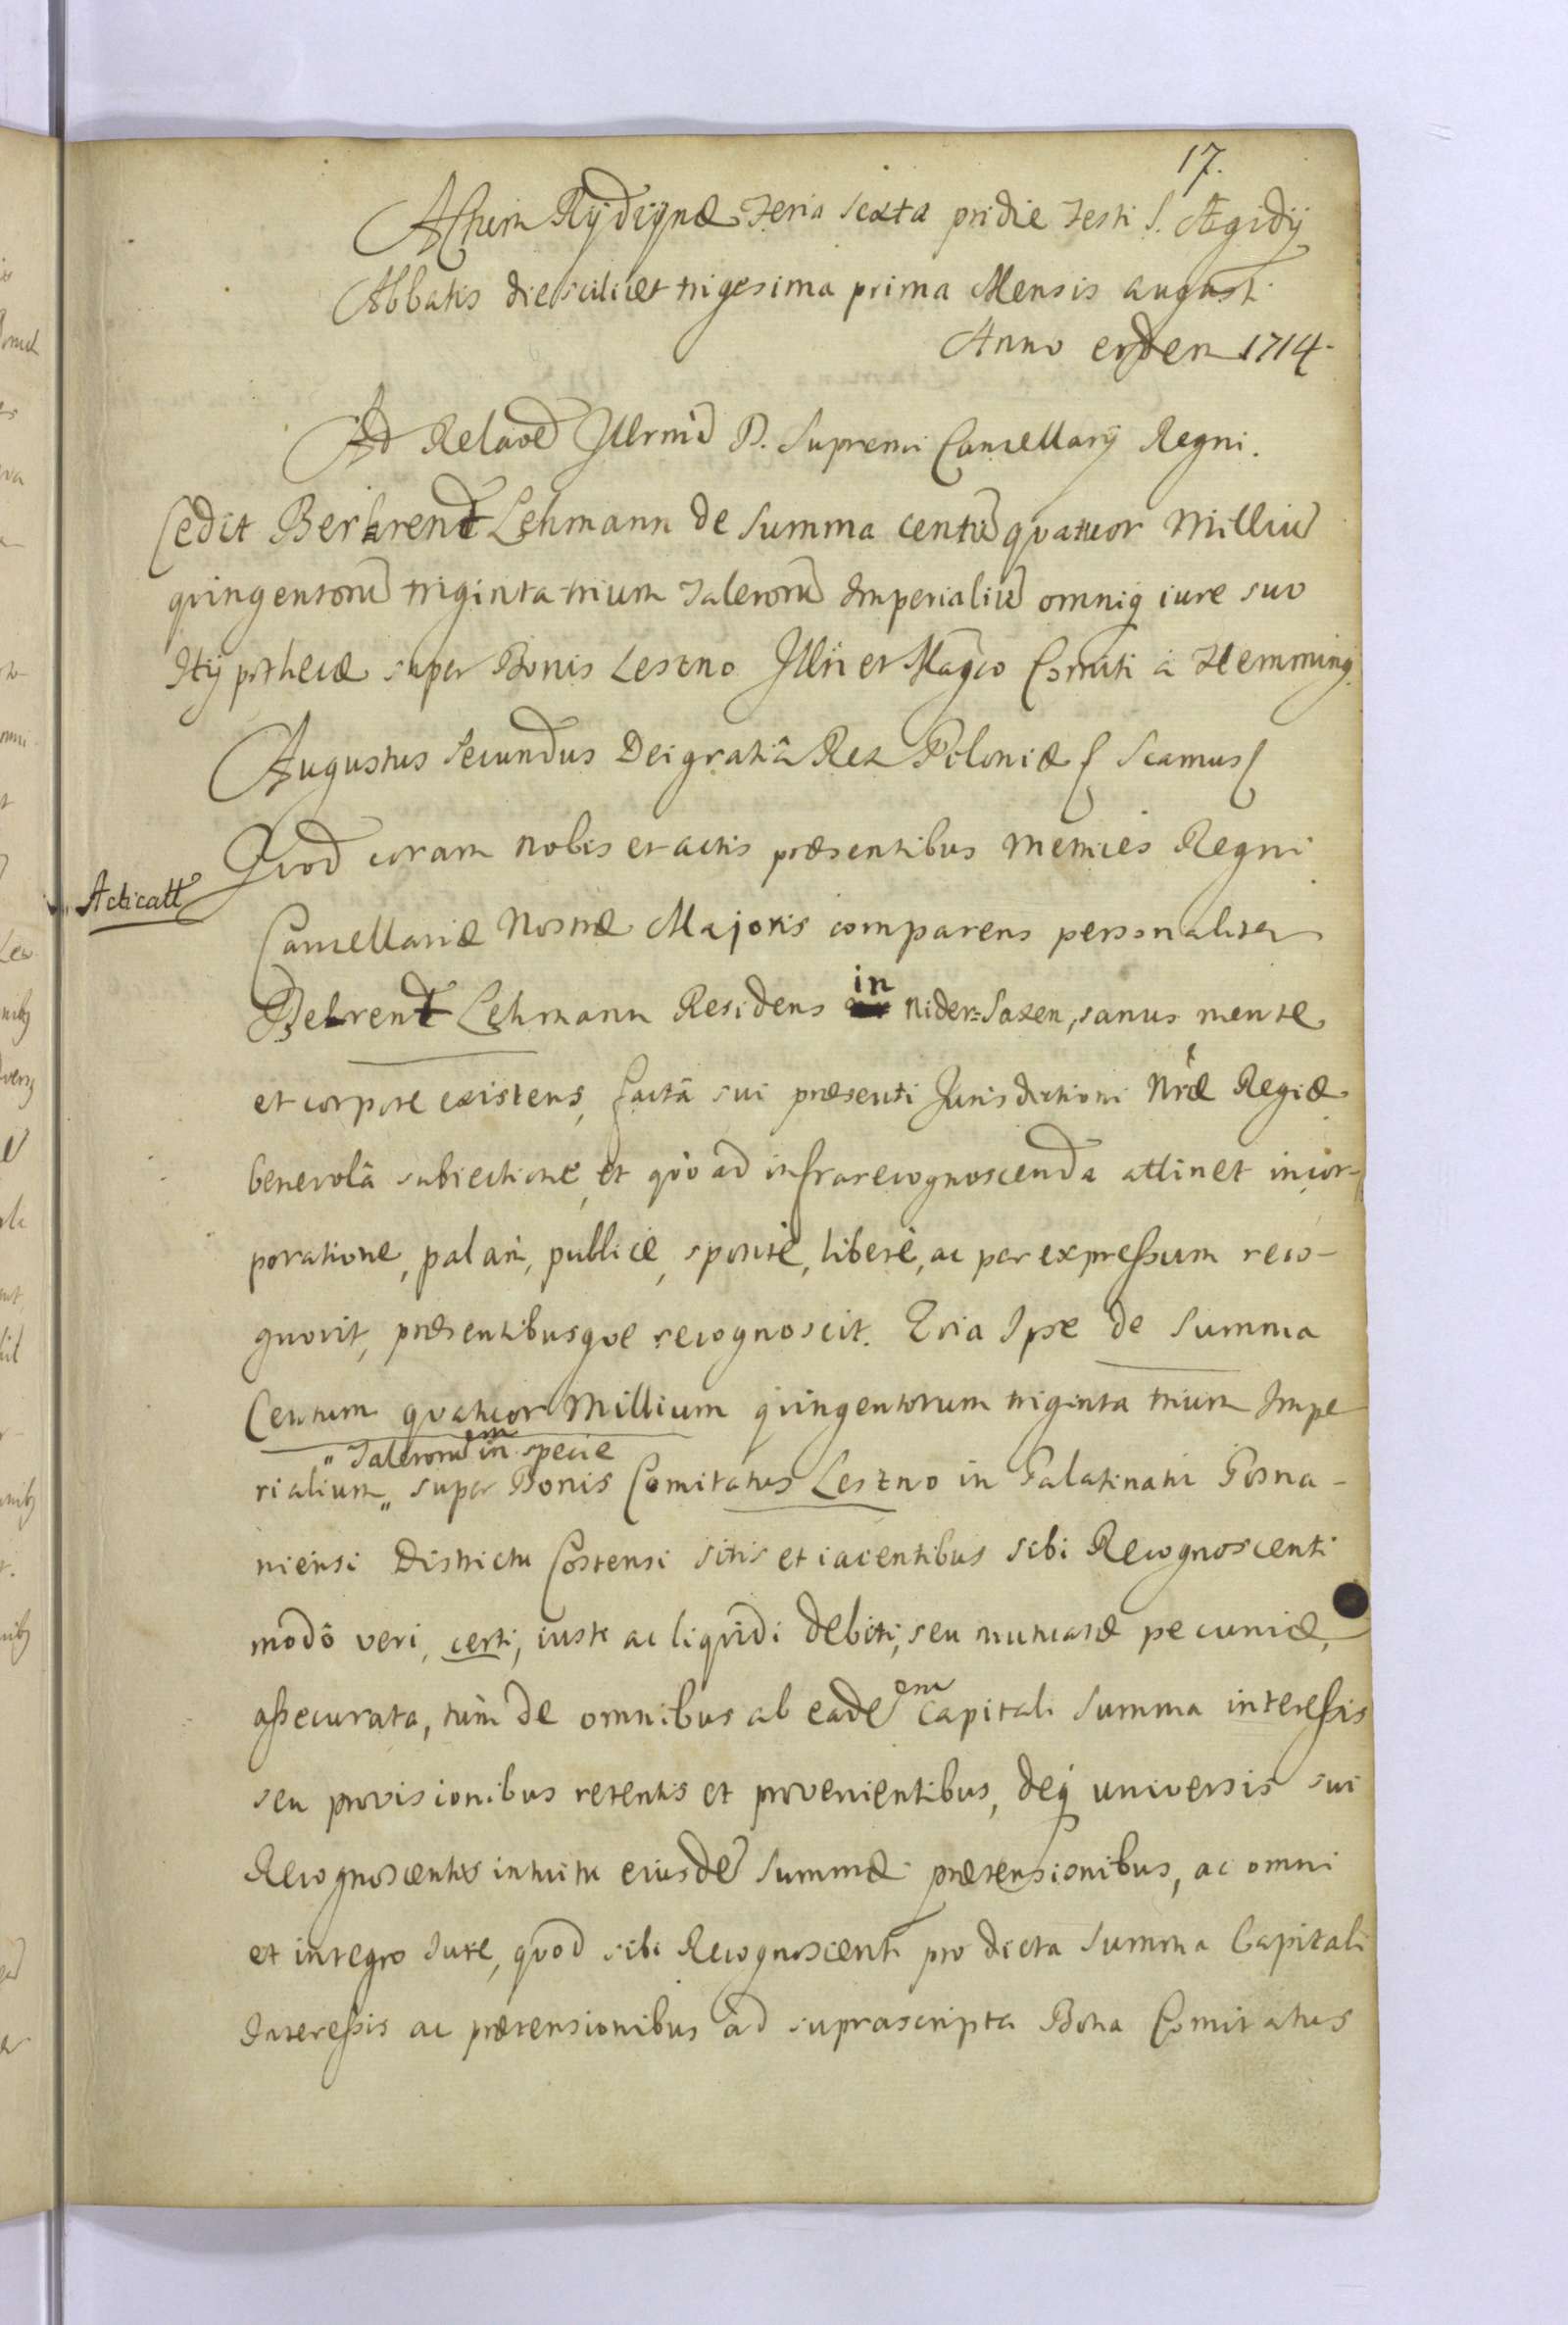 17.
Actum Rÿdÿnæ Feria sexta pridie Festi S. Ægidij
Abbatis die scilicet trigesima prima Mensis augusti
Anno eodem 1714.
Ad Relaoē Illrmi D. Supremi Cancellarij Regni.
Cedit Berhrendt Lehmann de Summa centū quatuor Milliū
quingentorū triginta trium Talerorū Imperialiū omniq iure suo
Hypothecæ super Bonis Leszno Illri et Magco Comiti à Flemming
Augustus Secundus Dei gratiâ Rex Poloniæ Scamus
Quod coram nobis et actis præsentibus Metrices Regni
Acticatt
Cancellariæ Nostræ Majoris comparens personaliter
Behrendt Lehmann Residens in Nider=Saxen, sanus mente
et corpore existens, factâ sui præsenti Jurisdictioni Nræ Regiæ
benevolâ subiectione, et quò ad infrarecognoscenda attinet incor-
poratione, palàm, publicè, sponte, liberè, ac per expressum reco-
gnovit, præsentibusque recognoscit. Qvia Ipse de Summa
Centum quatuor Millium quingentorum triginta trium Impe
" Talerorum in specie
rialium " super Bonis Comitatus Leszno in Palatinatu Posna-
niensi Districtu Costensi sitis et iacentibus sibi Recognoscenti
modô veri, certi, iusti ac liquidi debiti, seu mutuatæ pecuniæ,
assecurata, tùm de omnibus ab eadēem Capitali Summa interessis
seu provisionibus retentis et provenientibus, deq universis sui
Recognoscentis intuitu eiusdē summæ prætensionibus, ac omni
et integro Iure, quod sibi Recognoscenti pro dicta Summa Capitali
Interessis ac prætensionibus ad suprascripta Bona Comitatus